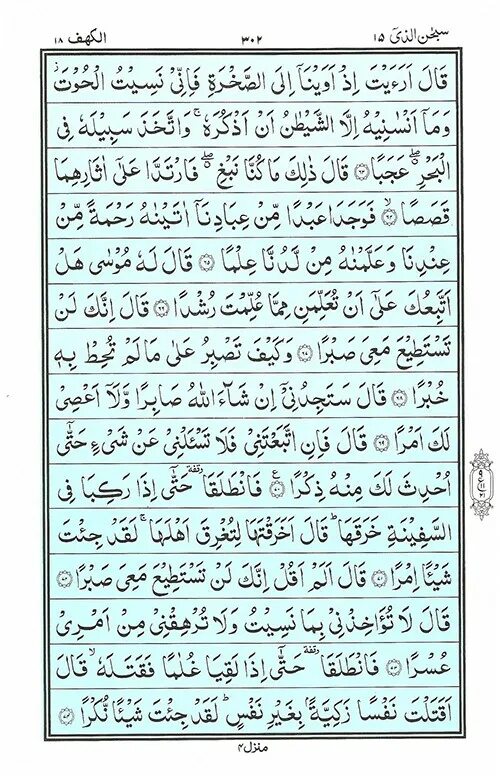 سبحٰن الذی ۱۵
۳۰۲
الکهف ۱۸
قَالَ اَرَءَيْتَ اِذْ اَوَيْنَاۤ اِلَى الصَّخْرَةِ فَاِنِّىْ نَسِيْتُ الْحُوْتَ ز
وَمَاۤ اَنْسٰنِيْهُ اِلَّا الشَّيْطٰنُ اَنْ اَذْكُرَهٗ ۚ وَاتَّخَذَ سَبِيْلَهٗ فِى
الْبَحْرِ ۖ عَجَبًا ۝۶۳ قَالَ ذٰلِكَ مَا كُنَّا نَبْغِ ۖ فَارْتَدَّا عَلٰٓى اٰثَارِهِمَا
قَصَصًا ۙ۝۶۴ فَوَجَدَا عَبْدًا مِّنْ عِبَادِنَاۤ اٰتَيْنٰهُ رَحْمَةً مِّنْ
عِنْدِنَا وَعَلَّمْنٰهُ مِنْ لَّدُنَّا عِلْمًا ۝۶۵ قَالَ لَهٗ مُوْسٰى هَلْ
اَتَّبِعُكَ عَلٰٓى اَنْ تُعَلِّمَنِ مِمَّا عُلِّمْتَ رُشْدًا ۝۶۶ قَالَ اِنَّكَ لَنْ
تَسْتَطِيْعَ مَعِىَ صَبْرًا ۝۶۷ وَكَيْفَ تَصْبِرُ عَلٰى مَا لَمْ تُحِطْ بِهٖ
خُبْرًا ۝۶۸ قَالَ سَتَجِدُنِىْۤ اِنْ شَآءَ اللّٰهُ صَابِرًا وَّلَاۤ اَعْصِىْ
لَكَ اَمْرًا ۝۶۹ قَالَ فَاِنِ اتَّبَعْتَنِىْ فَلَا تَسْـَٔلْنِىْ عَنْ شَىْءٍ حَتّٰٓى
اُحْدِثَ لَكَ مِنْهُ ذِكْرًا ۝۷۰ ع فَانْطَلَقَا وقفة حَتّٰٓى اِذَا رَكِبَا فِى
السَّفِيْنَةِ خَرَقَهَا ؕ قَالَ اَخَرَقْتَهَا لِتُغْرِقَ اَهْلَهَا ۚ لَقَدْ جِئْتَ
شَيْـًٔا اِمْرًا ۝۷۱ قَالَ اَلَمْ اَقُلْ اِنَّكَ لَنْ تَسْتَطِيْعَ مَعِىَ صَبْرًا ۝۷۲
قَالَ لَا تُؤَاخِذْنِىْ بِمَا نَسِيْتُ وَلَا تُرْهِقْنِىْ مِنْ اَمْرِىْ
عُسْرًا ۝۷۳ فَانْطَلَقَا وقفة حَتّٰٓى اِذَا لَقِيَا غُلٰمًا فَقَتَلَهٗ ۙ قَالَ
اَقَتَلْتَ نَفْسًا زَكِيَّةًۢ بِغَيْرِ نَفْسٍ ؕ لَقَدْ جِئْتَ شَيْـًٔا نُّكْرًا ۝۷۴
منزل ۴